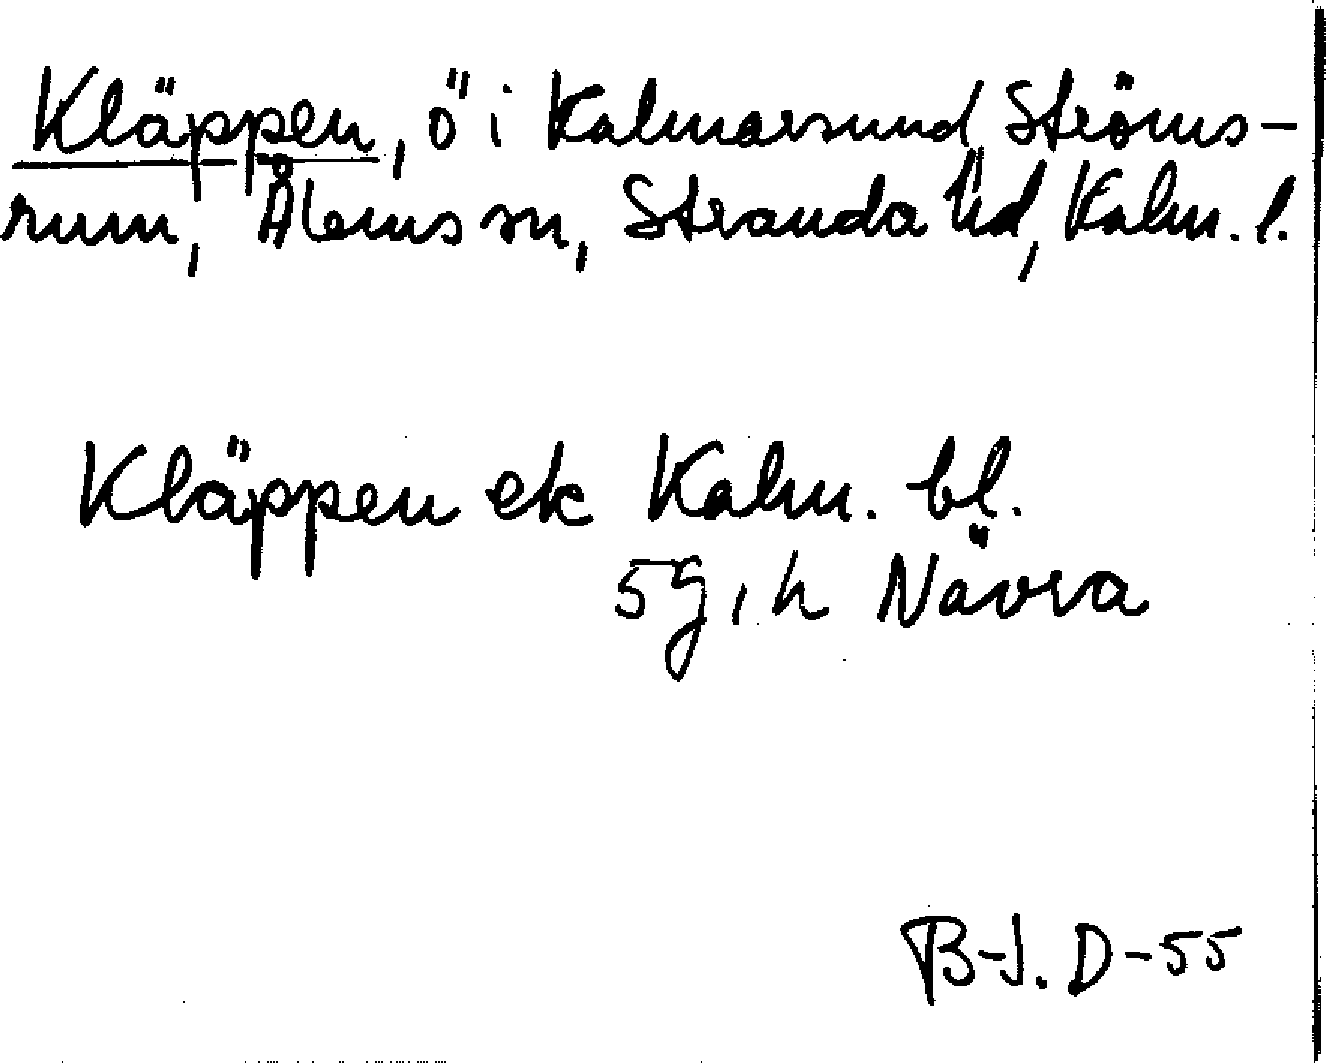 Kläppen, ö i Kalmarsund, Ströms-
rum, Ålems sn, Stranda hd, Kalm. l.
Kläppen ek Kalm. bl.
5 g, h Nävra
B-J. D-55